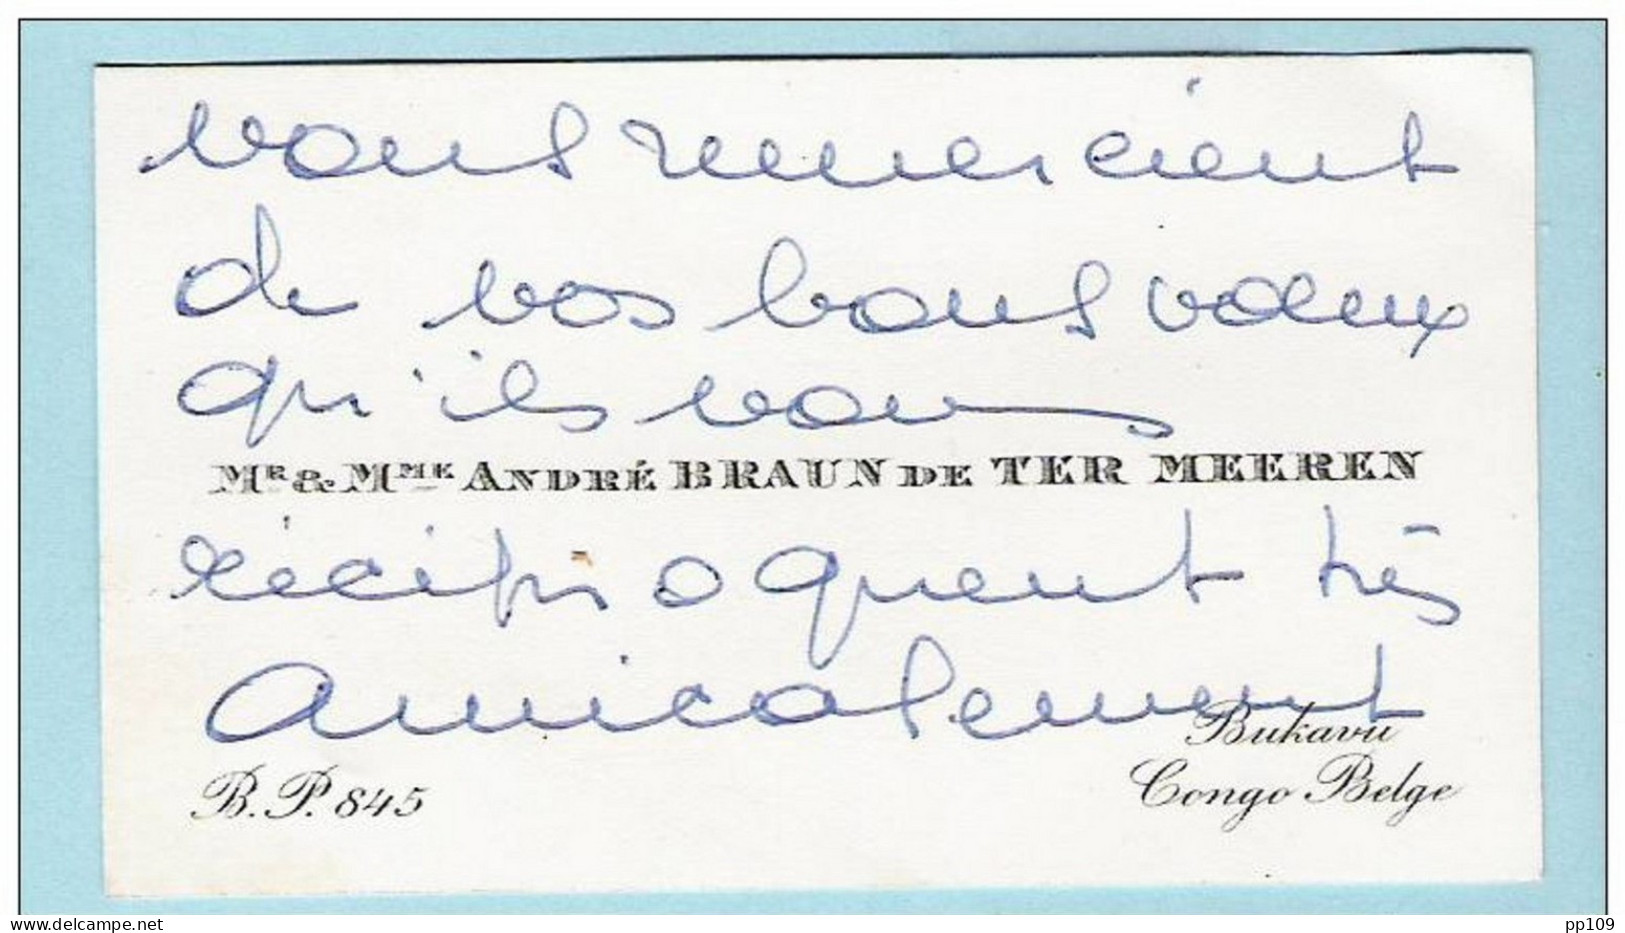 vous remercient
de vos bons vœux
qu'ils vous
MR & MME ANDRÉ BRAUN DE TER MEEREN
réciproquent très
amicalement
Bukavu
B.P. 845 Congo Belge
pp109